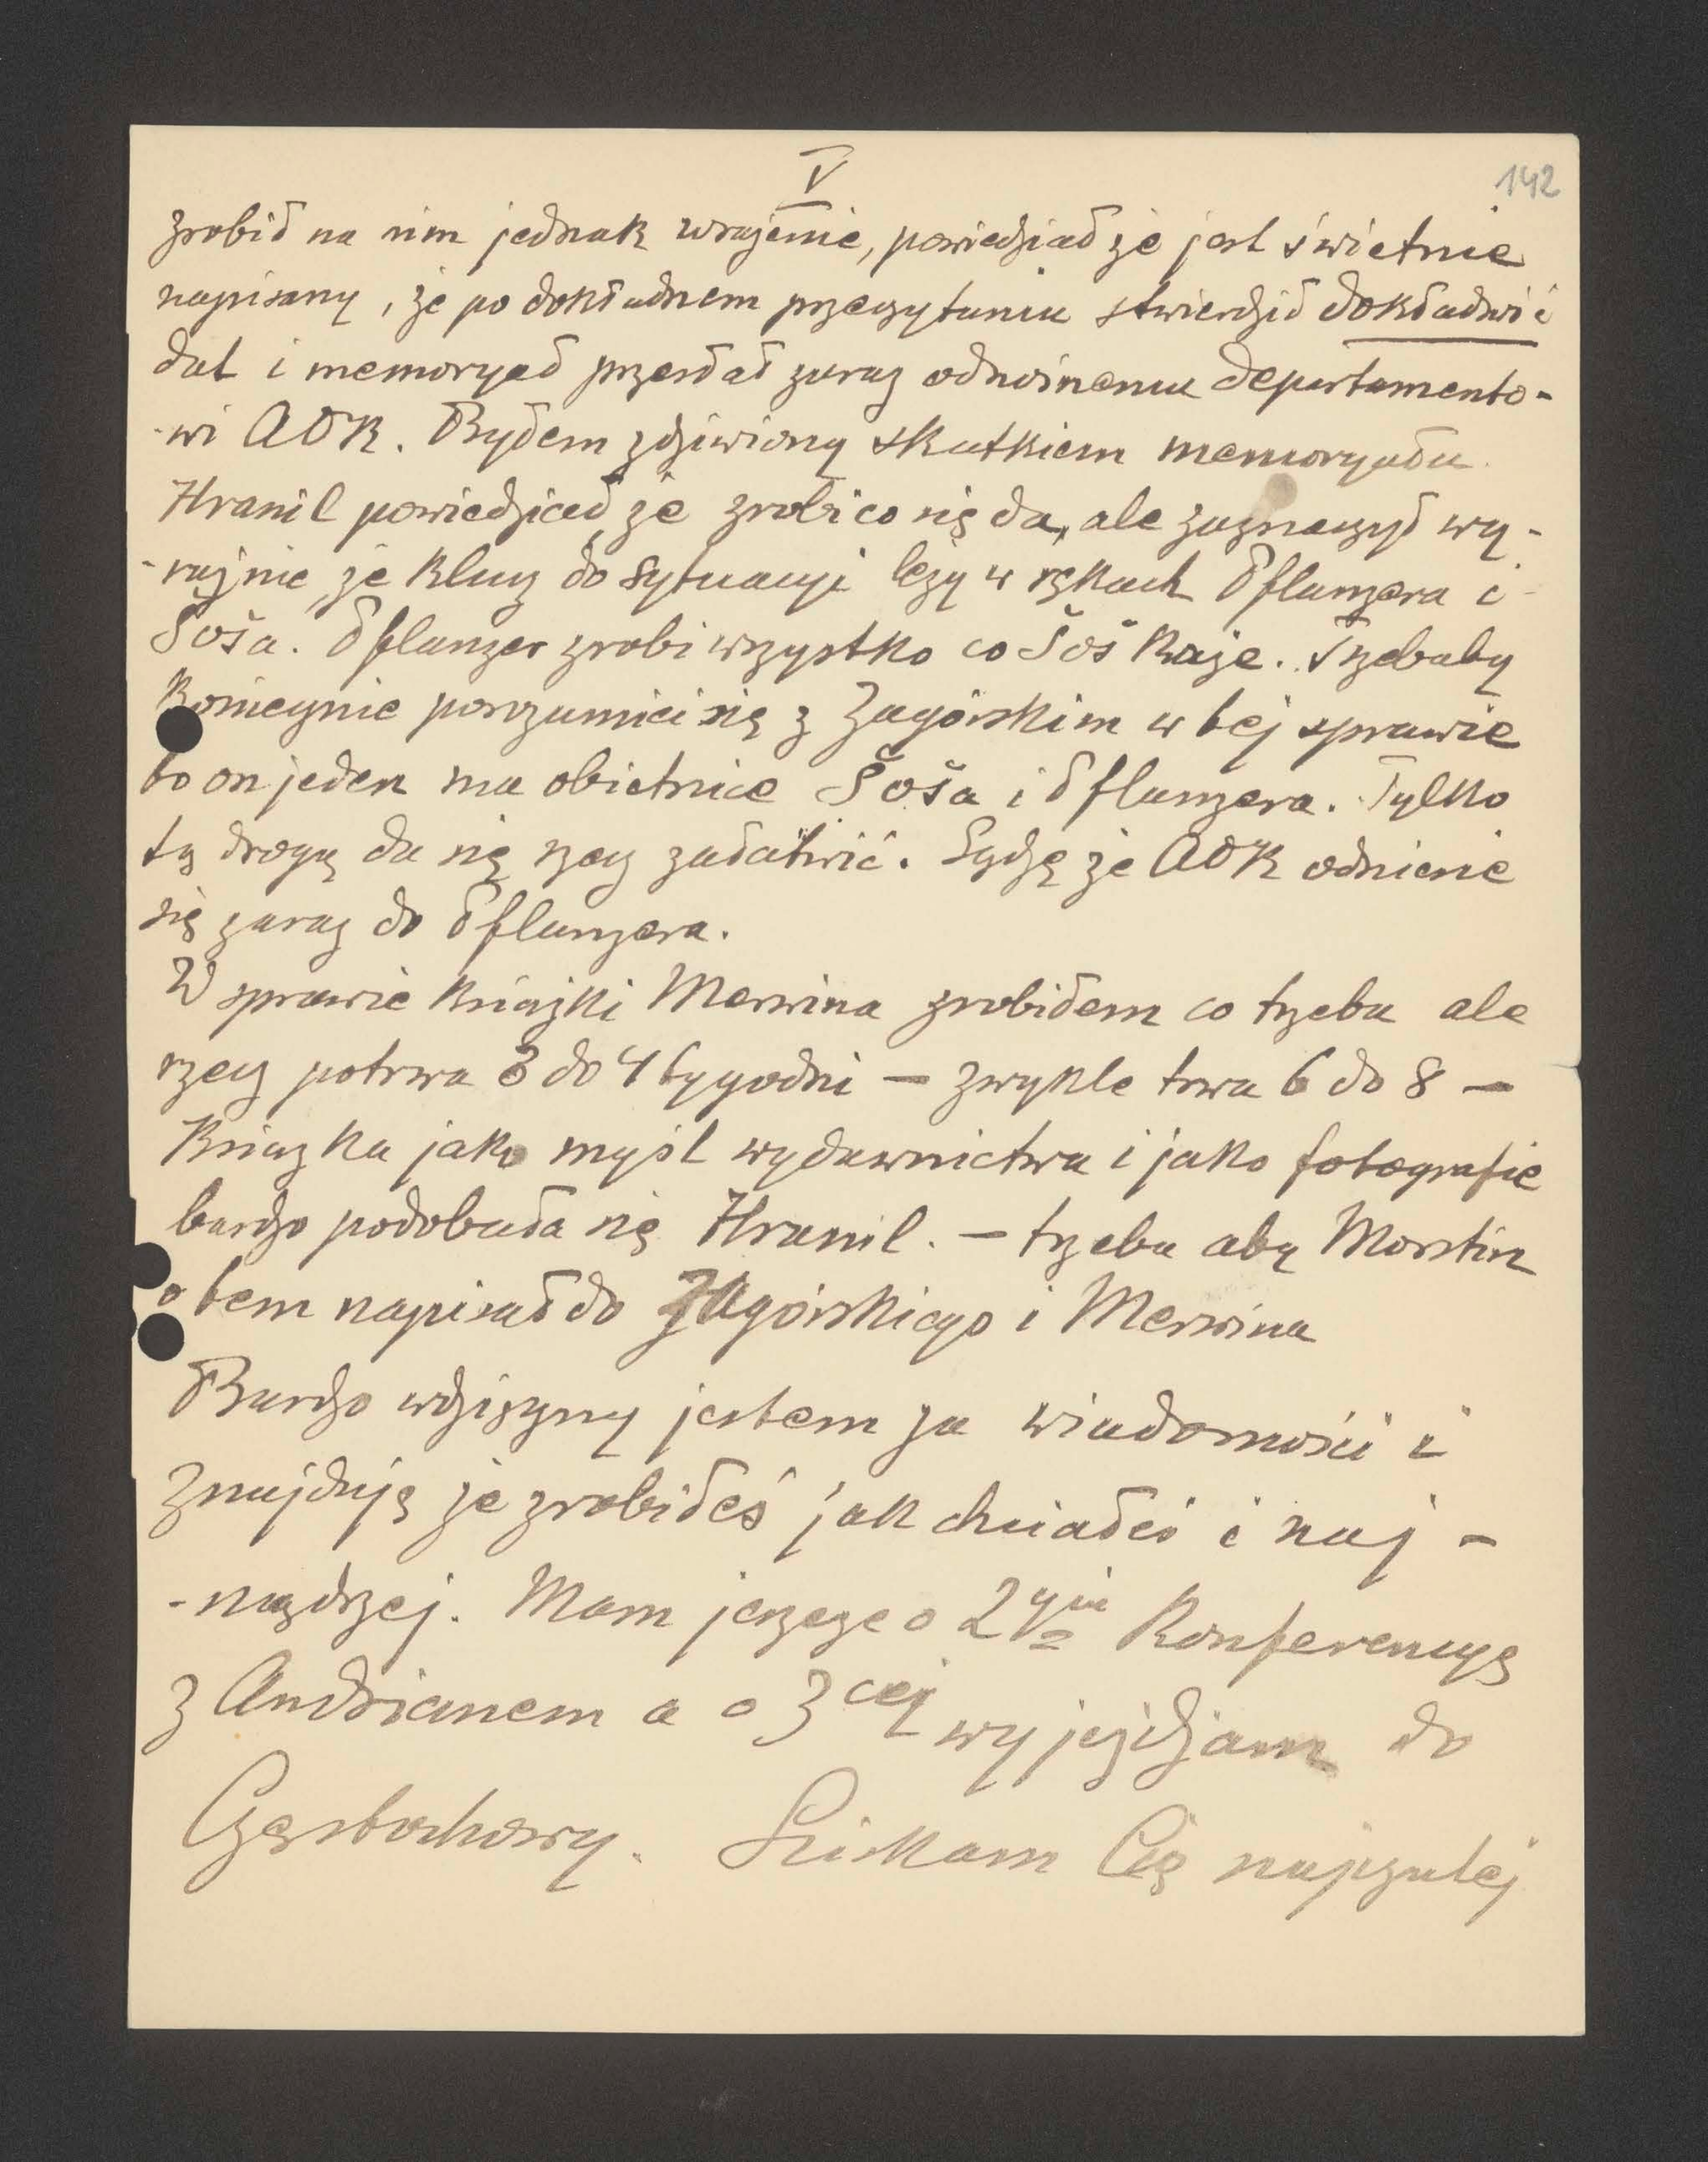 V
142
zrobił na nim jednak wrażenie, powiedział że jest świetnie
napisany, że po dokładnem przeczytaniu stwierdził dokładność
dat i memoryał przesłał zaraz odnośnemu departamento-
-wi AOK. Byłem zdziwiony skutkiem memoryału.
Hranil powiedział że zrobi co się da, ale zaznaczył wy-
-raźnie że klucz do sytuacyi leży w rękach Pflanzera i
Šoša. Pflanzer zrobi wszystko co Šoš każe. Trzebaby
koniecznie porozumieć się z Zagórskim w tej sprawie
bo on jeden ma obietnice Šoša i Pflanzera. Tylko
tą drogą da się rzecz załatwić. Sądzę że AOK odniesie
się zaraz do Pflanzera.
W sprawie książki Merwina zrobiłem co trzeba ale
rzecz potrwa 3 do 4 tygodni — zwykle trwa 6 do 8 —
Książka jako myśl wydawnictwa i jako fotografie
bardzo podobała się Hranil. — trzeba aby Morstin
o tem napisał do Zagórskiego i Merwina
Bardzo wdzięczny jestem za wiadomości i
znajduję że zrobiłeś jak chciałeś i naj-
-mądrzej. Mam jeszcze o 2giej Konferencyę
z Andrianem a o 3ciej wyjeżdżam do
Częstochowy. Ściskam Cię najczulej